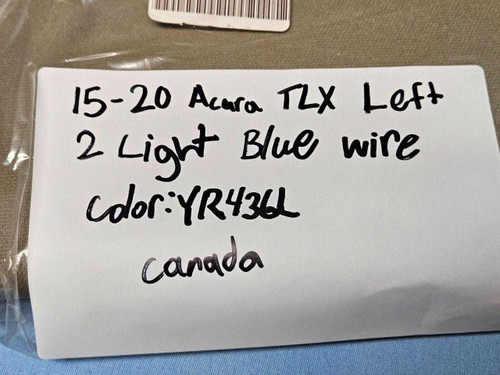 15-20 Acura TLX Left
2 Light Blue wire
Color:YR436L
canada